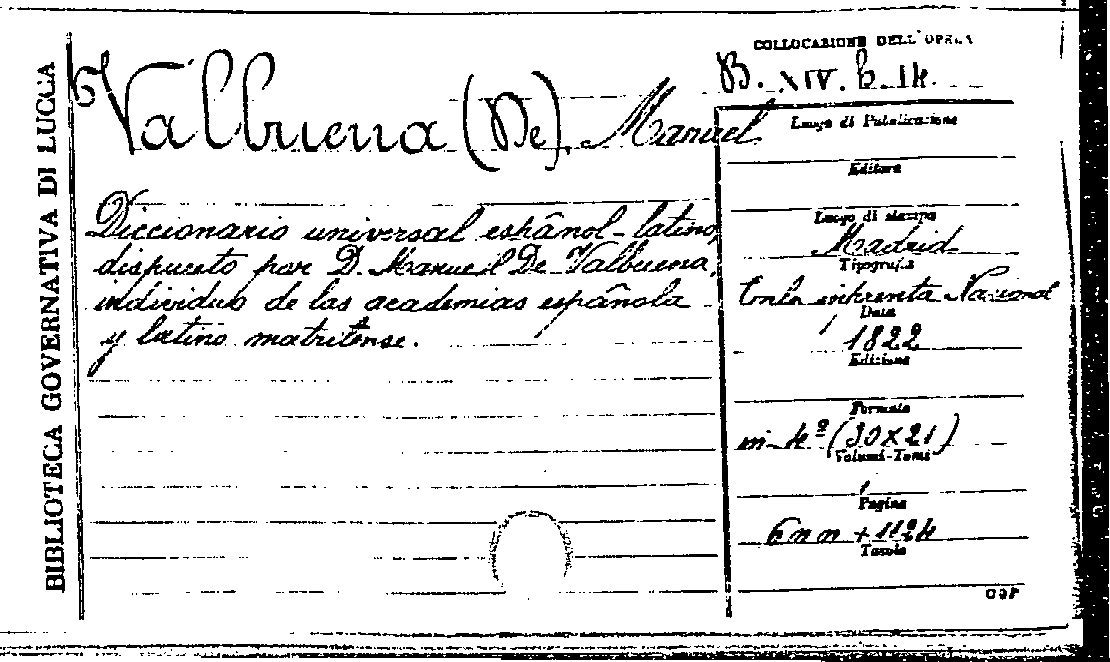 BIBLIOTECA GOVERNATIVA DI LUCCA
Valbuena (De). Manuel
Diccionario universal español-latino,
dispuesto por D. Manueil De Valbuena,
individuo de las academias española
y latino matritense.
COLLOCAZIONE DELL'OPERA
B. XIV. b. 14.
Luogo di Pubblicazione
Editore
Luogo di stampa
Madrid
Tipografia
En la imprenta Nacional
Data
1822
Edizione
Formato
in-4º (30x21)
Volumi-Tomi
Pagine
6 nn + 1124
Tavole